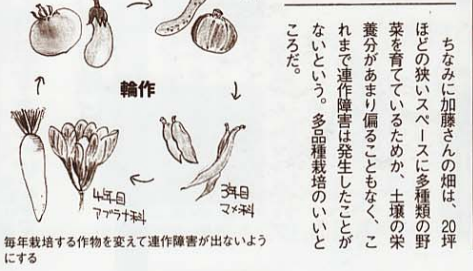 ちなみに加藤さんの畑は、20坪
ほどの狭いスペースに多種類の野
菜を育てているためか、土壌の栄
養分があまり偏ることもなく、こ
れまで連作障害は発生したことが
ないという。多品種栽培のいいと
ころだ。
輪作
3年目
マメ科
4年目
アブラナ科
毎年栽培する作物を変えて連作障害が出ないよう
にする